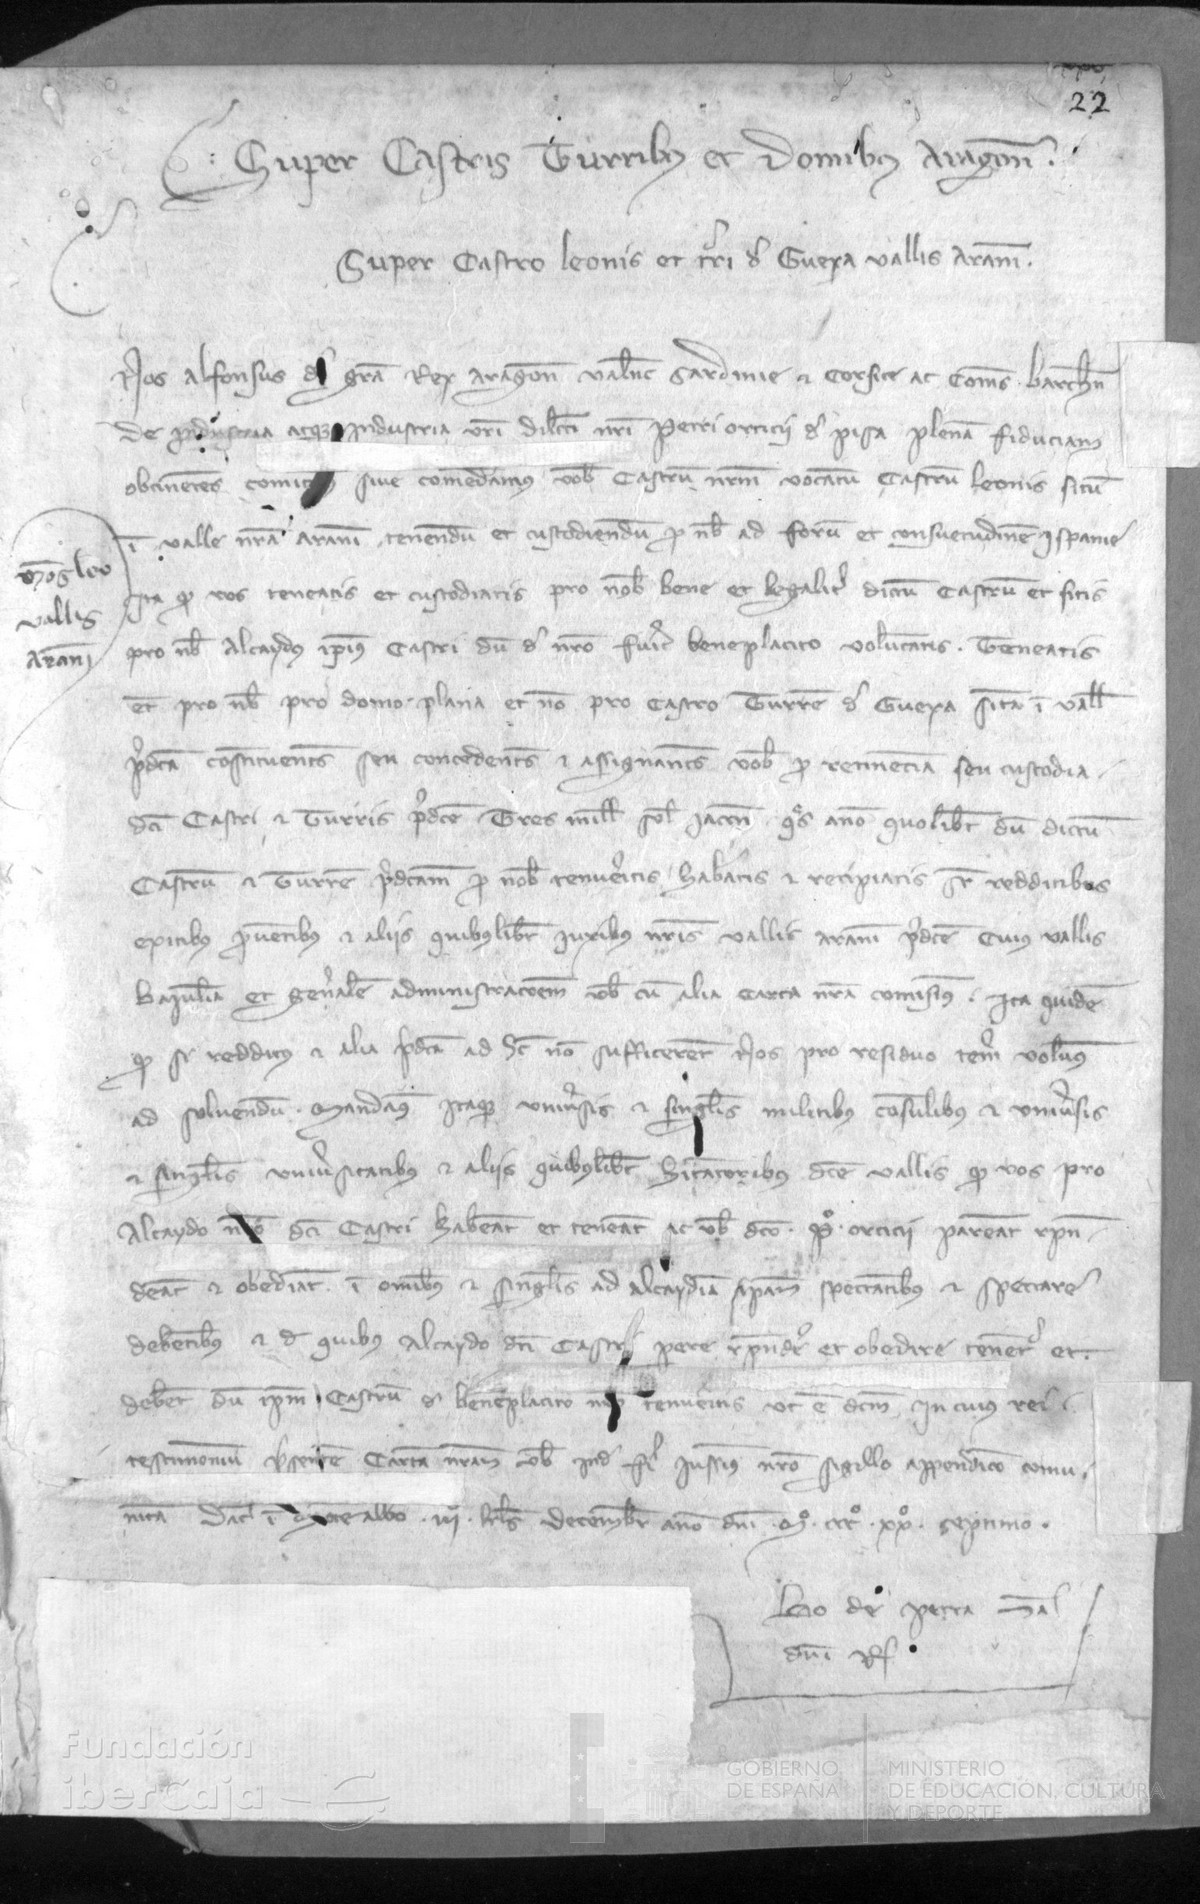 22
Super Castris Turribus et domibus Aragoni.
Super Castro leonis et turri de Guexa vallis Arani.
Nos Alfonsus dei gra Rex Aragon Valenc Sardinie et Corsice ac Comes Barchn
De industria atque industria vri dilecti nri Petri orticii de pisa plena fiduciam
obtinentes comit sive comendamus vob Castru nrm vocatu Castru leonis situ
i valle nra arani tenendu et custodiendu p nob ad foru et consuetudine ispanie
Ita q vos teneatis et custodiatis pro nob bene et legalit dictu Castru et sitis
pro nob Alcaydus ipius Castri du de nro fuit beneplacito voluntatis. Teneatis
et pro nob pro domo plana et no pro Castro Turre de Guexa sita i vall
pdcta constituents seu concedents et assignants vob p retinencia seu custodia
dci Castri et Turris pdce Tres mill sol jaccn qs ano quolibt du dictu
Castru et Turre pdctam p nob tenueitis habeatis et recipiatis sr redditibus
exitibus pventibus et aliis quibuslibt juribus nris vallis arani pdce Cuius vallis
bajulia et genale administracoem vob cu alia carta nra comisimus. Ita quide
q si redditus et alia pdcta ad hec no sufficerent Nos pro residuo tem volumus
ad solvendu. Mandamus itaque univsis et singlis militibus consulibus et univsis
et singlis univsitatibus et aliis quibuslibt hitatoribus dce vallis q vos pro
Alcaydo nro dci Castri habeat et teneat ac vob dco Po orticii pareat rpn
deat et obediat i omibus et singlis ad alcaydia ipam spectatibus et spectare
debetibus et de quibus Alcaydo dci Castri pere rpnde et obedire tenet et
debet du ipm Castru de beneplacito nro tenueitis ut e dcm In cuius rei
testimoniu psente Carta nram vob ind fi jussimus nro sigillo appendico comu
nita Dat i Monte albo iij kls Decembr ano dni Mo ccco xxo septimo.
Mos leo
vallis
Arani
Bo de petra
dni Rs
Fundación
iberCaja
GOBIERNO
DE ESPAÑA
MINISTERIO
DE EDUCACIÓN, CULTURA
Y DEPORTE